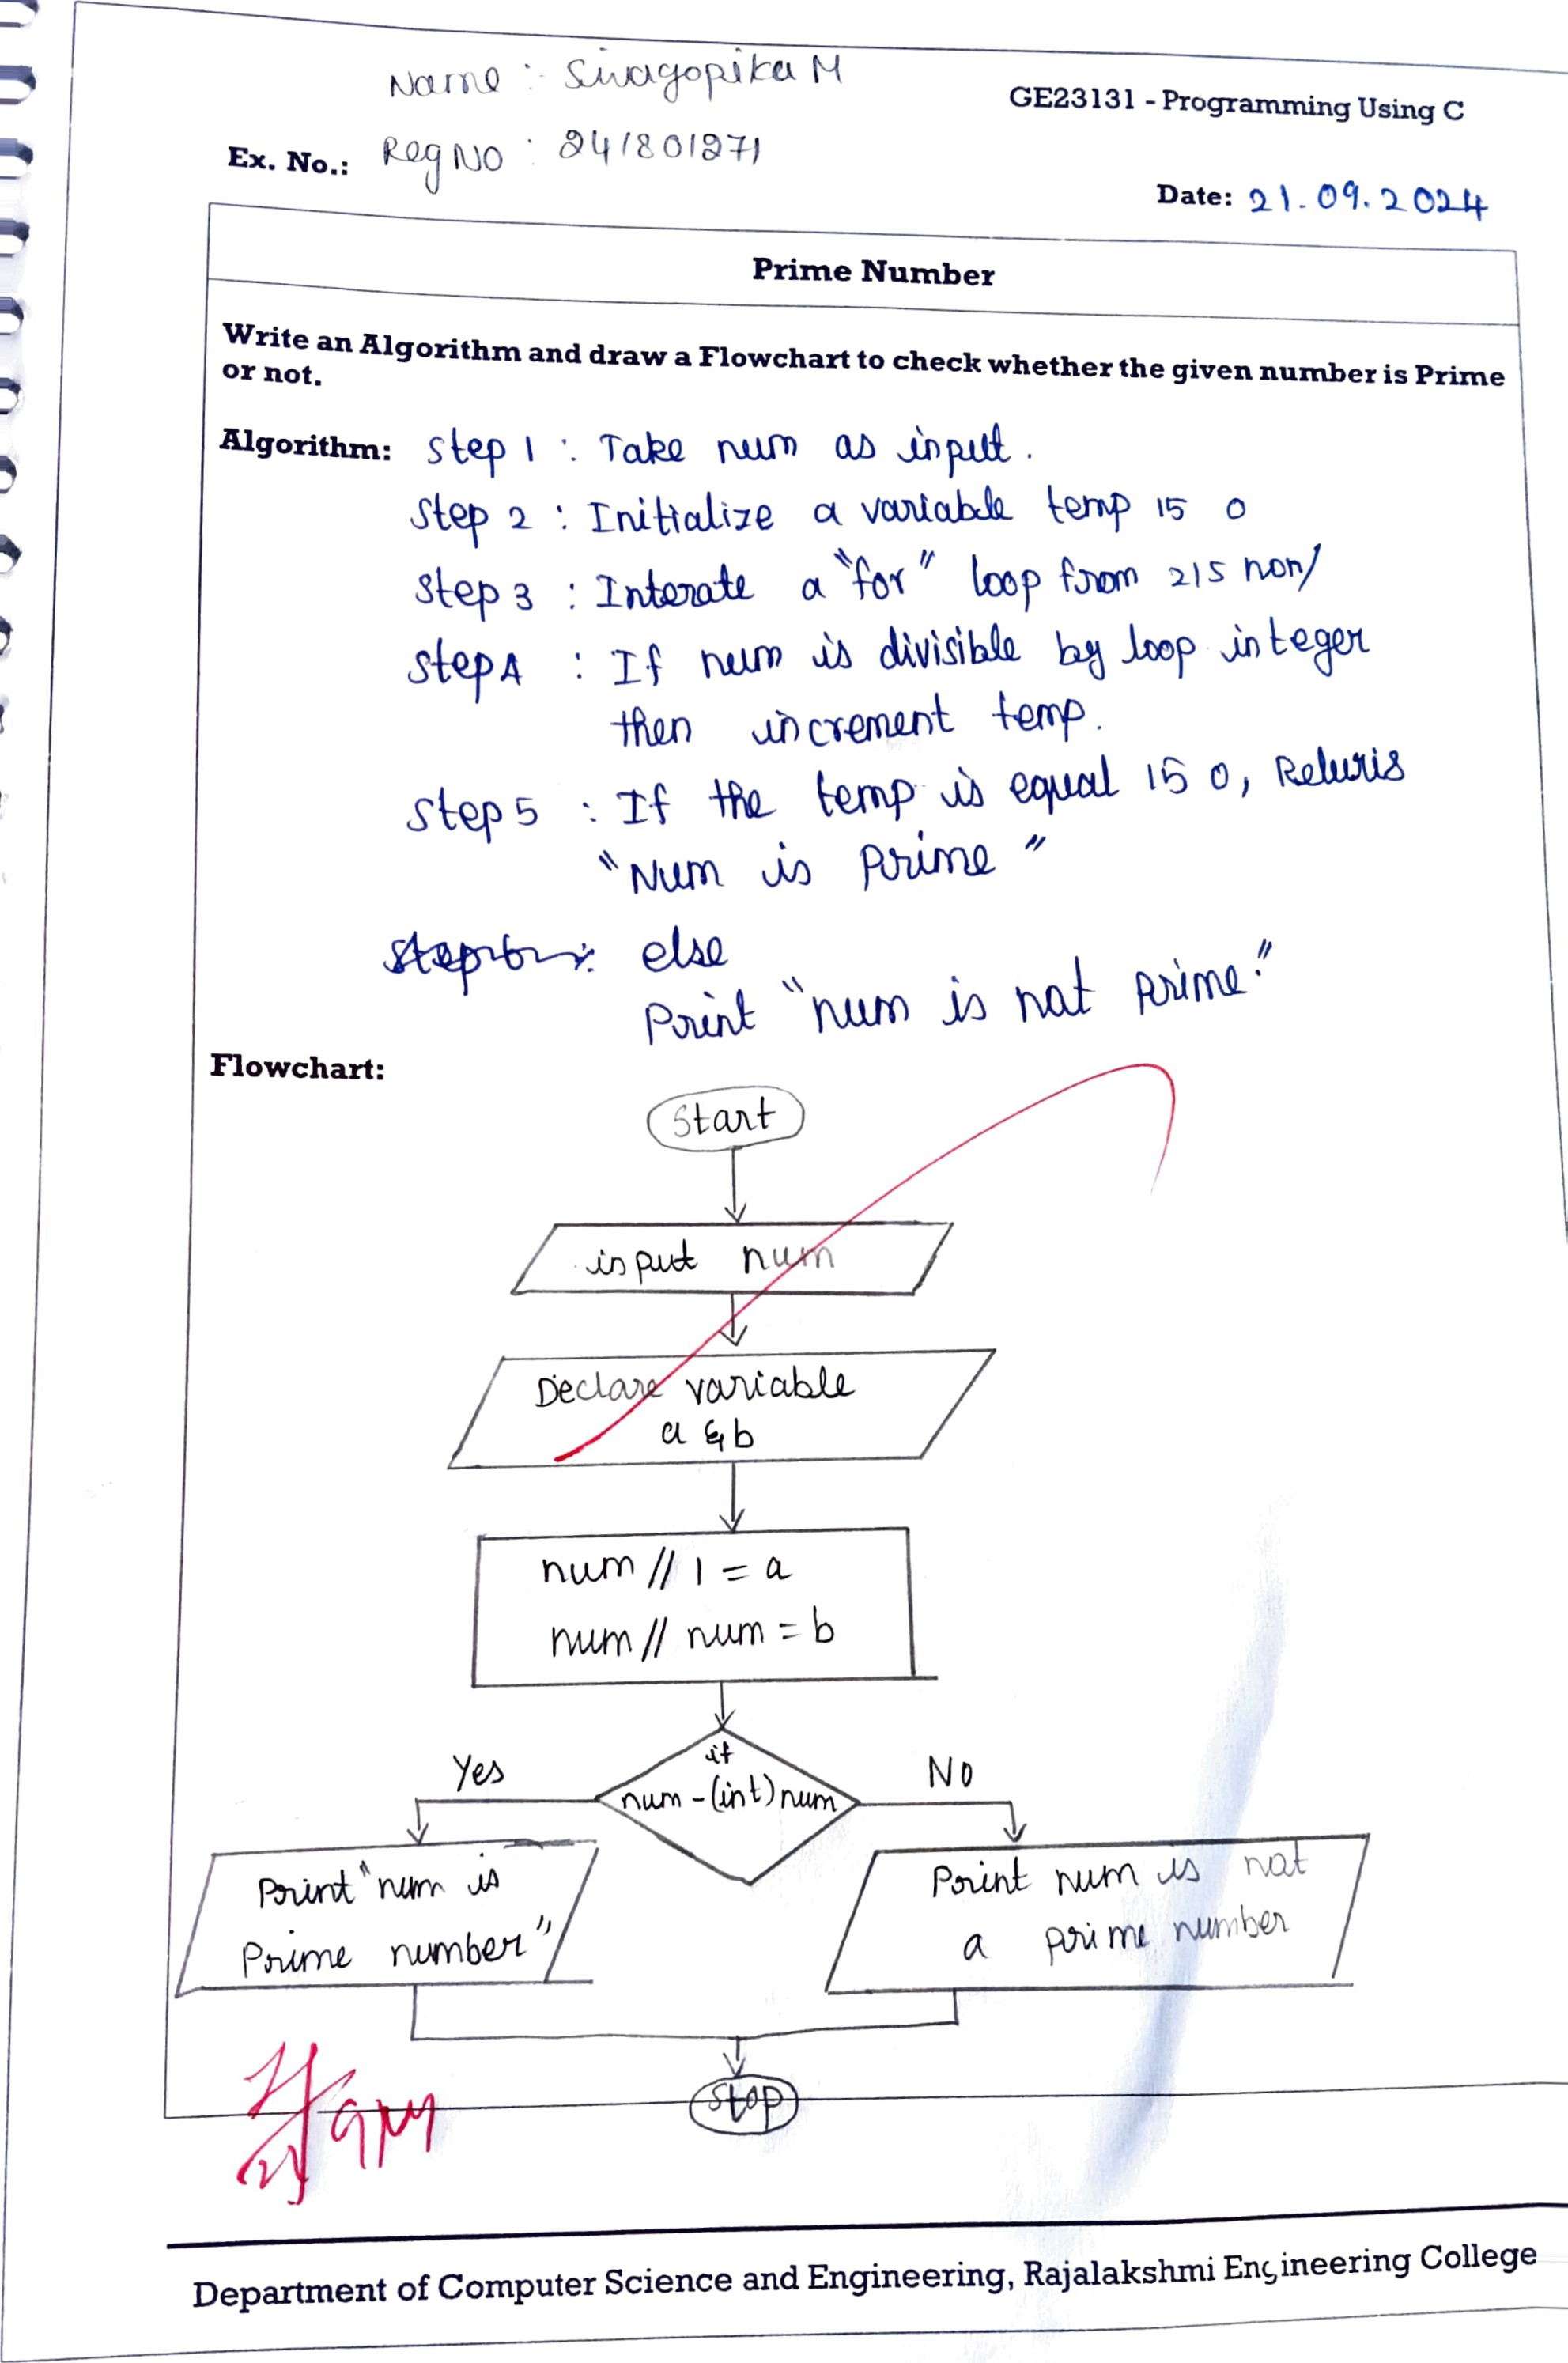 Name : Sivagopika M
GE23131 - Programming Using C
Ex. No.: Reg NO : 241801271
Date: 21.09.2024
Prime Number
Write an Algorithm and draw a Flowchart to check whether the given number is Prime
or not.
Algorithm: Step 1 : Take num as input.
Step 2 : Initialize a variable temp 15 0
Step 3 : Interate a "for" loop from 215
Step 4 : If num is divisible by loop integer
then increment temp.
Step 5 : If the temp is equal 15 0,
"Num is Prime"
else
Print "num is nat prime."
Flowchart:
Start
input num
Declare variable
a & b
num // 1 = a
num // num = b
if
num - (int) num
Yes
No
Print "num is
Prime number"
Print num is nat
a prime number
Stop
Department of Computer Science and Engineering, Rajalakshmi Engineering College